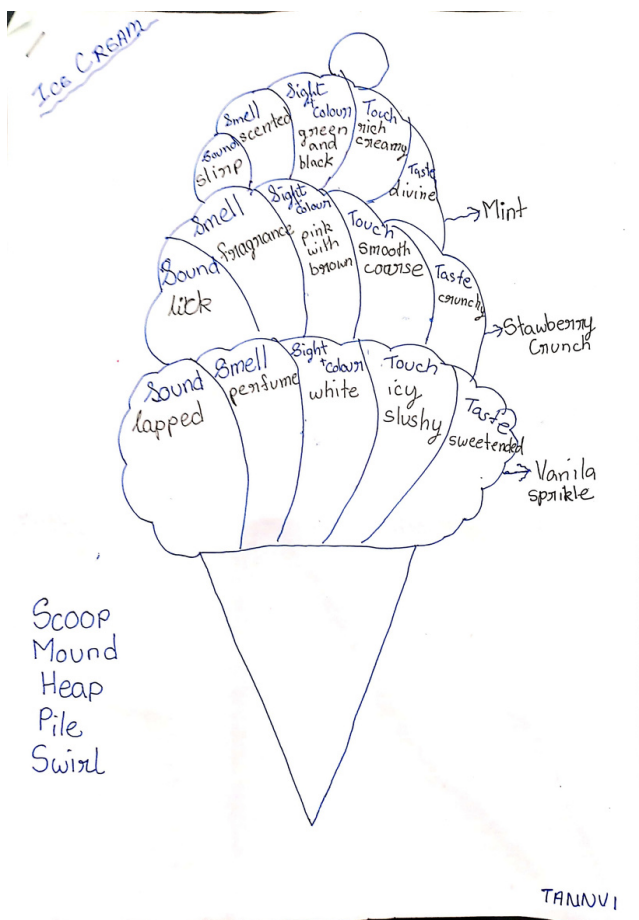 ICE CREAM
Smell
scented
Sight
+
Colour
green
and
black
Touch
rich
creamy
Sound
slirp
Taste
divine
Mint
Smell
fragrance
Sight
+
Colour
pink
with
brown
Touch
smooth
coarse
Sound
lick
Taste
crunchy
Stawberry
Crunch
Sound
lapped
Smell
perfume
Sight
+
Colour
white
Touch
icy
slushy
Taste
sweetended
Vanila
sprikle
Scoop
Mound
Heap
Pile
Swirl
TANNVI